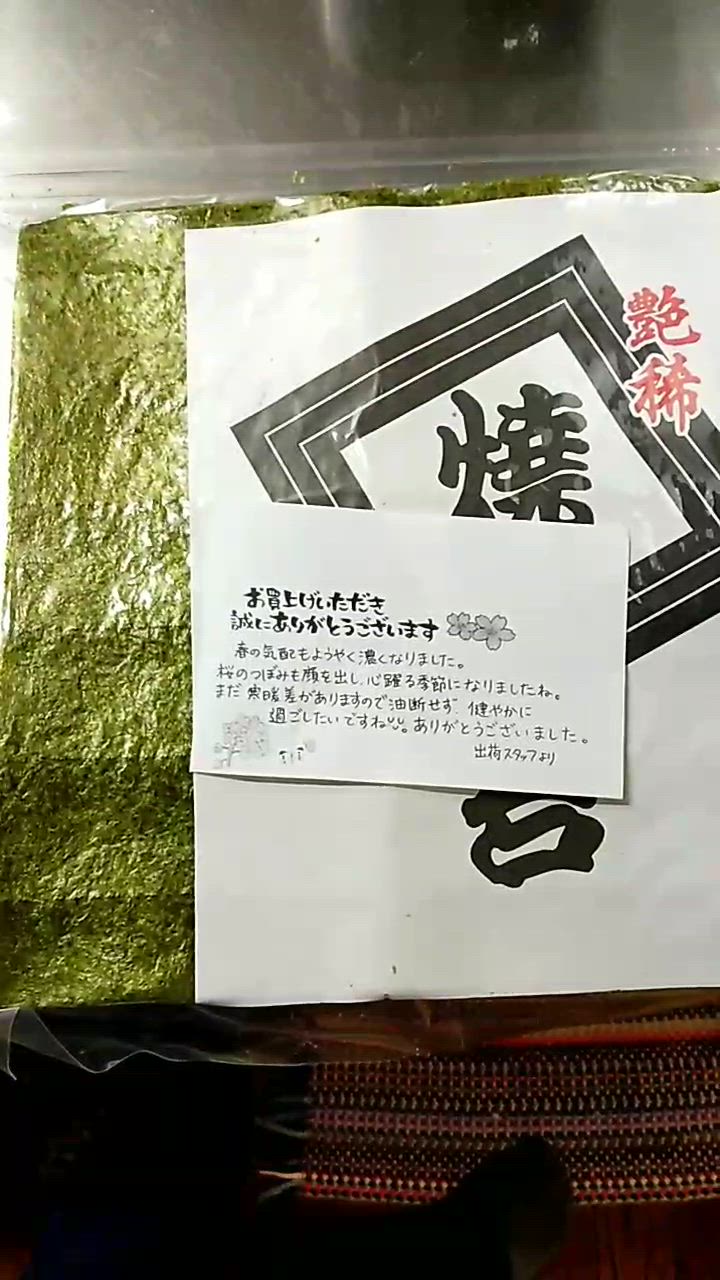 艶
稀
焼
お買上げいただき
誠にありがとうございます
春の気配もようやく濃くなりました。
桜のつぼみも顔を出し、心躍る季節になりましたね。
まだ寒暖差がありますので油断せず、健やかに
過ごしたいですね。ありがとうございました。
出荷スタッフより